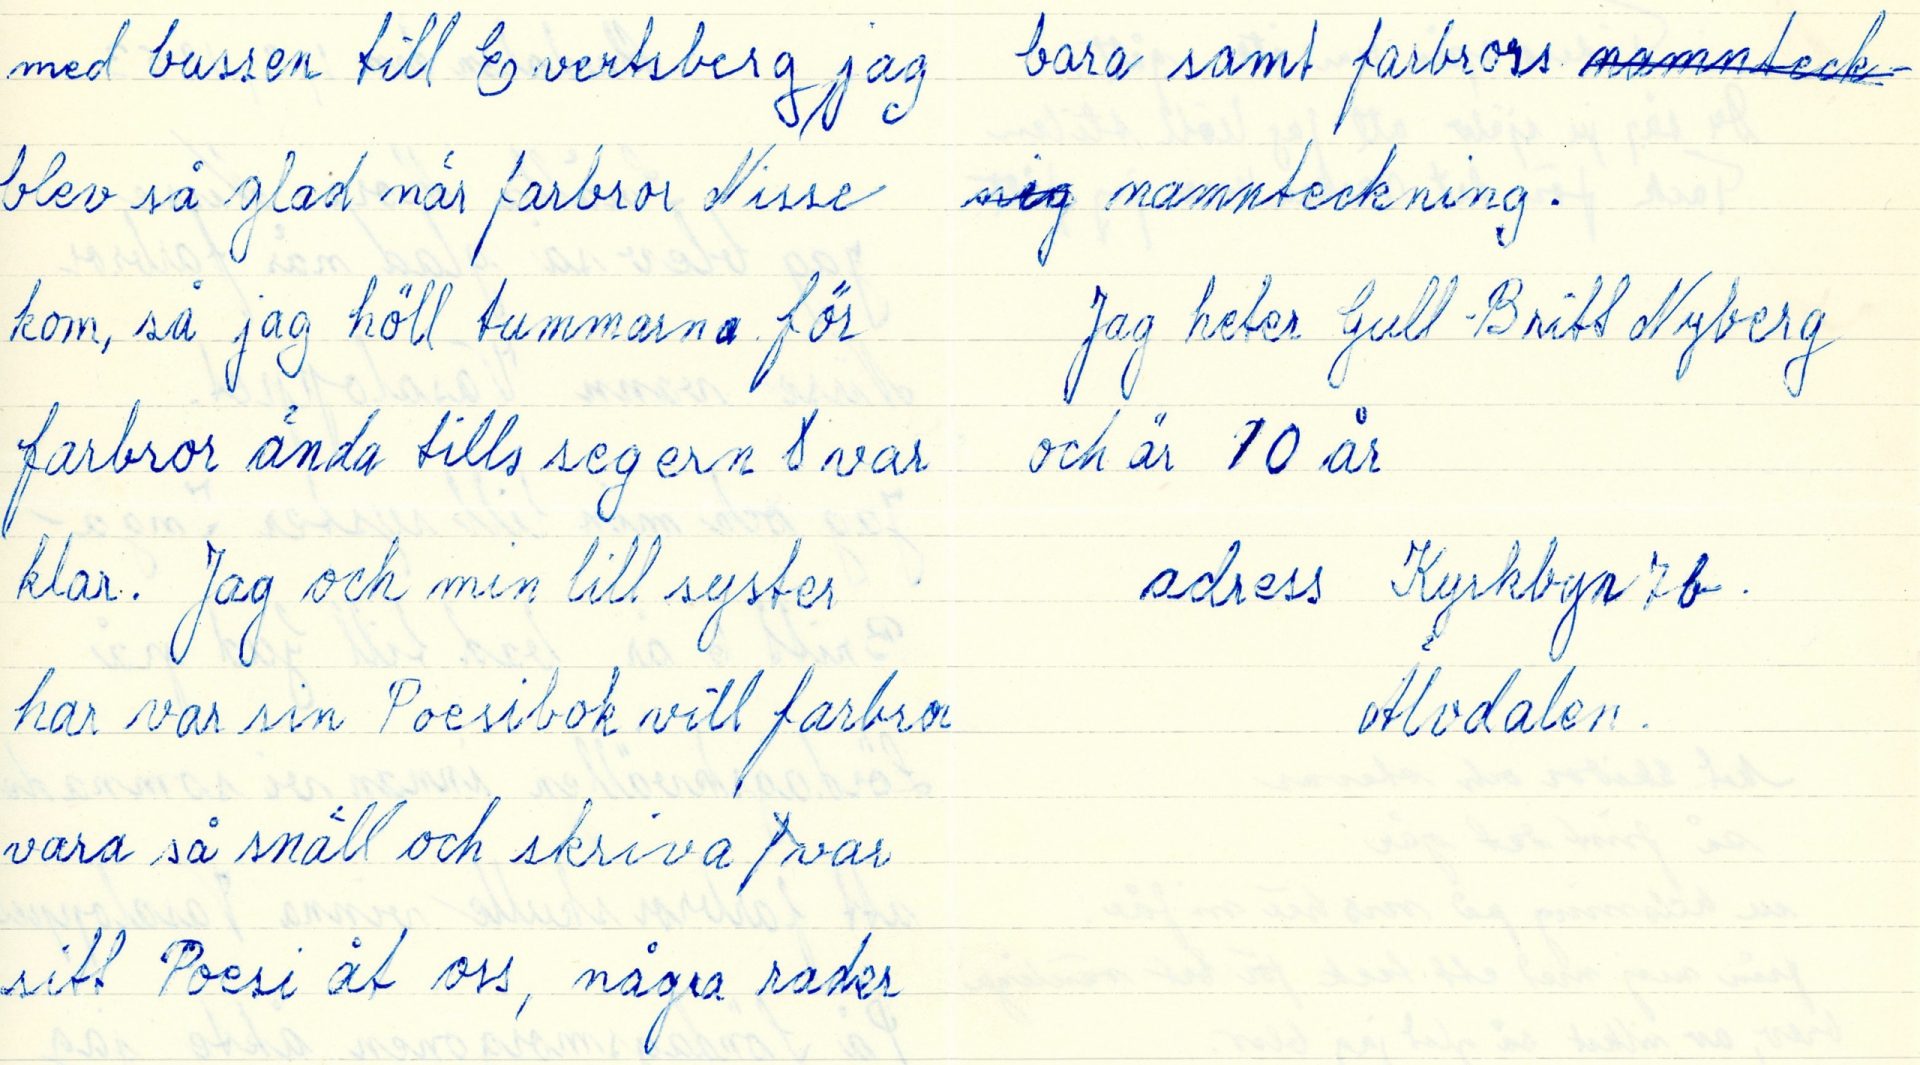 med bussen till Evertsberg jag
blev så glad när farbror Nisse
kom, så jag höll tummarna för
farbror ända tills segern var
klar. Jag och min lill syster
har var sin Poesibok vill farbror
vara så snäll och skriva var
sitt Poesi åt oss, några rader
bara samt farbrors namnteck-
nig namnteckning.
Jag heter Gull-Britt Nyberg
och är 10 år
adress Kyrkbyn 7b.
Älvdalen.